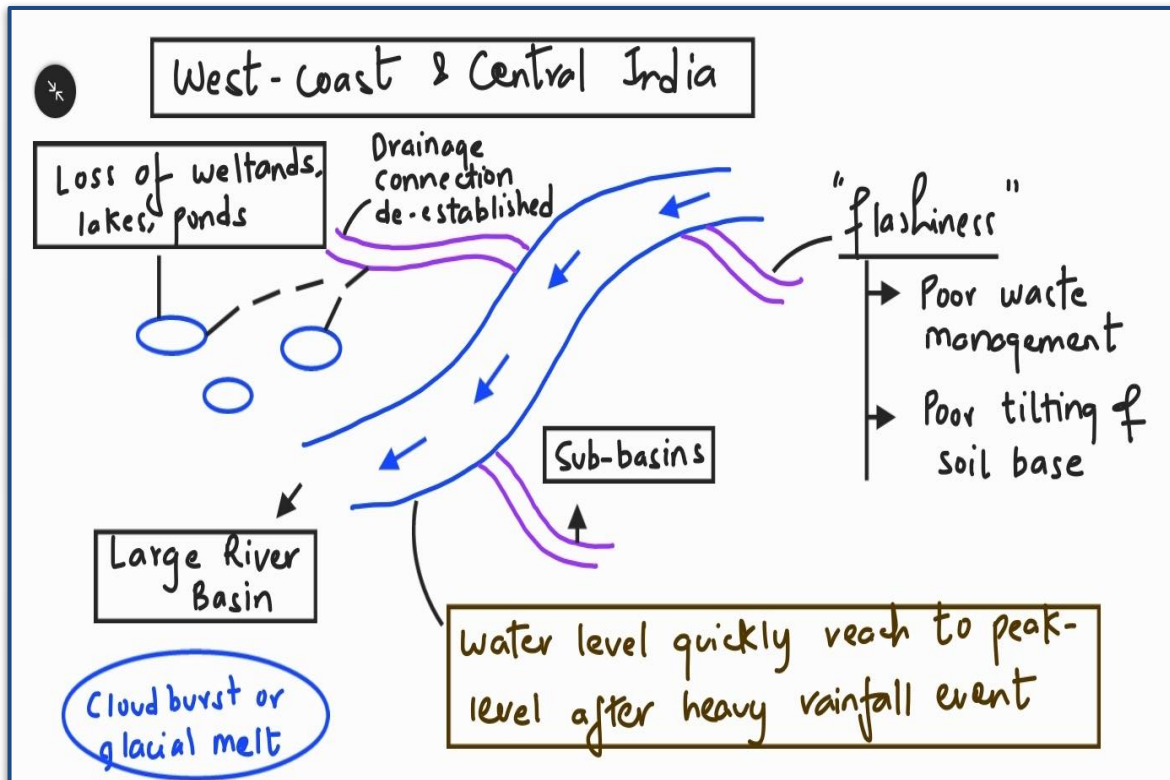 West-Coast & Central India
Loss of weltands,
lakes, ponds
Drainage
connection
de-established
"flashiness"
→ Poor waste
management
→ Poor tilting of
soil base
Sub-basins
Large River
Basin
Water level quickly reach to peak-
level after heavy rainfall event
Cloudburst or
glacial melt